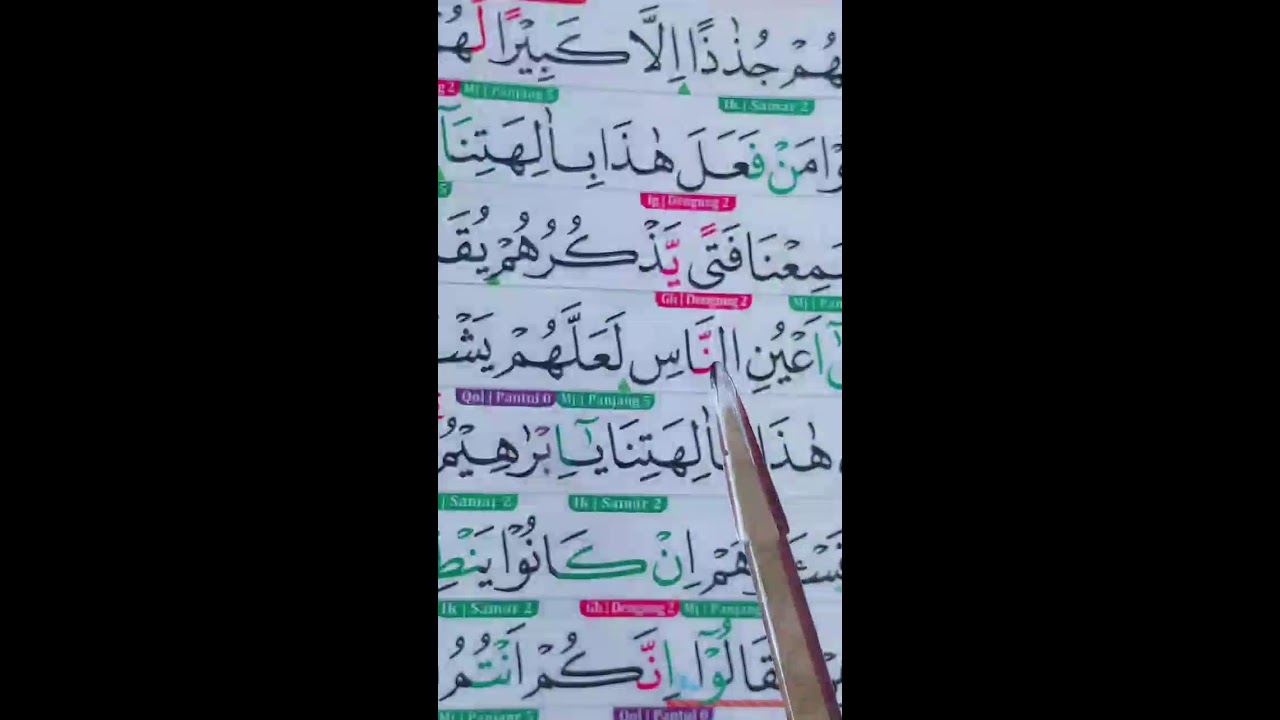 هُمْ جُذٰذًا اِلَّا كَبِيْرًا لَّهُ
Mj | Panjang 5 Ik | Samar 2
مَنْ فَعَلَ هٰذَا بِاٰلِهَتِنَآ
Ig | Dengung 2
سَمِعْنَا فَتًى يَّذْكُرُهُمْ يُقَ
Gh | Dengung 2 Mj | Pan
اَعْيُنِ النَّاسِ لَعَلَّهُمْ يَشْ
Qol | Pantul 0 Mj | Panjang 5
هٰذَا بِاٰلِهَتِنَا يٰٓاِبْرٰهِيْمُ
| Samar 2 Ik | Samar 2
فَسْـَٔلُوْهُمْ اِنْ كَانُوْا يَنْطِ
Ik | Samar 2 Gh | Dengung 2 Mj | Panjang
فَقَالُوْٓا اِنَّكُمْ اَنْتُمُ
Mj | Panjang 5 Qol | Pantul 0